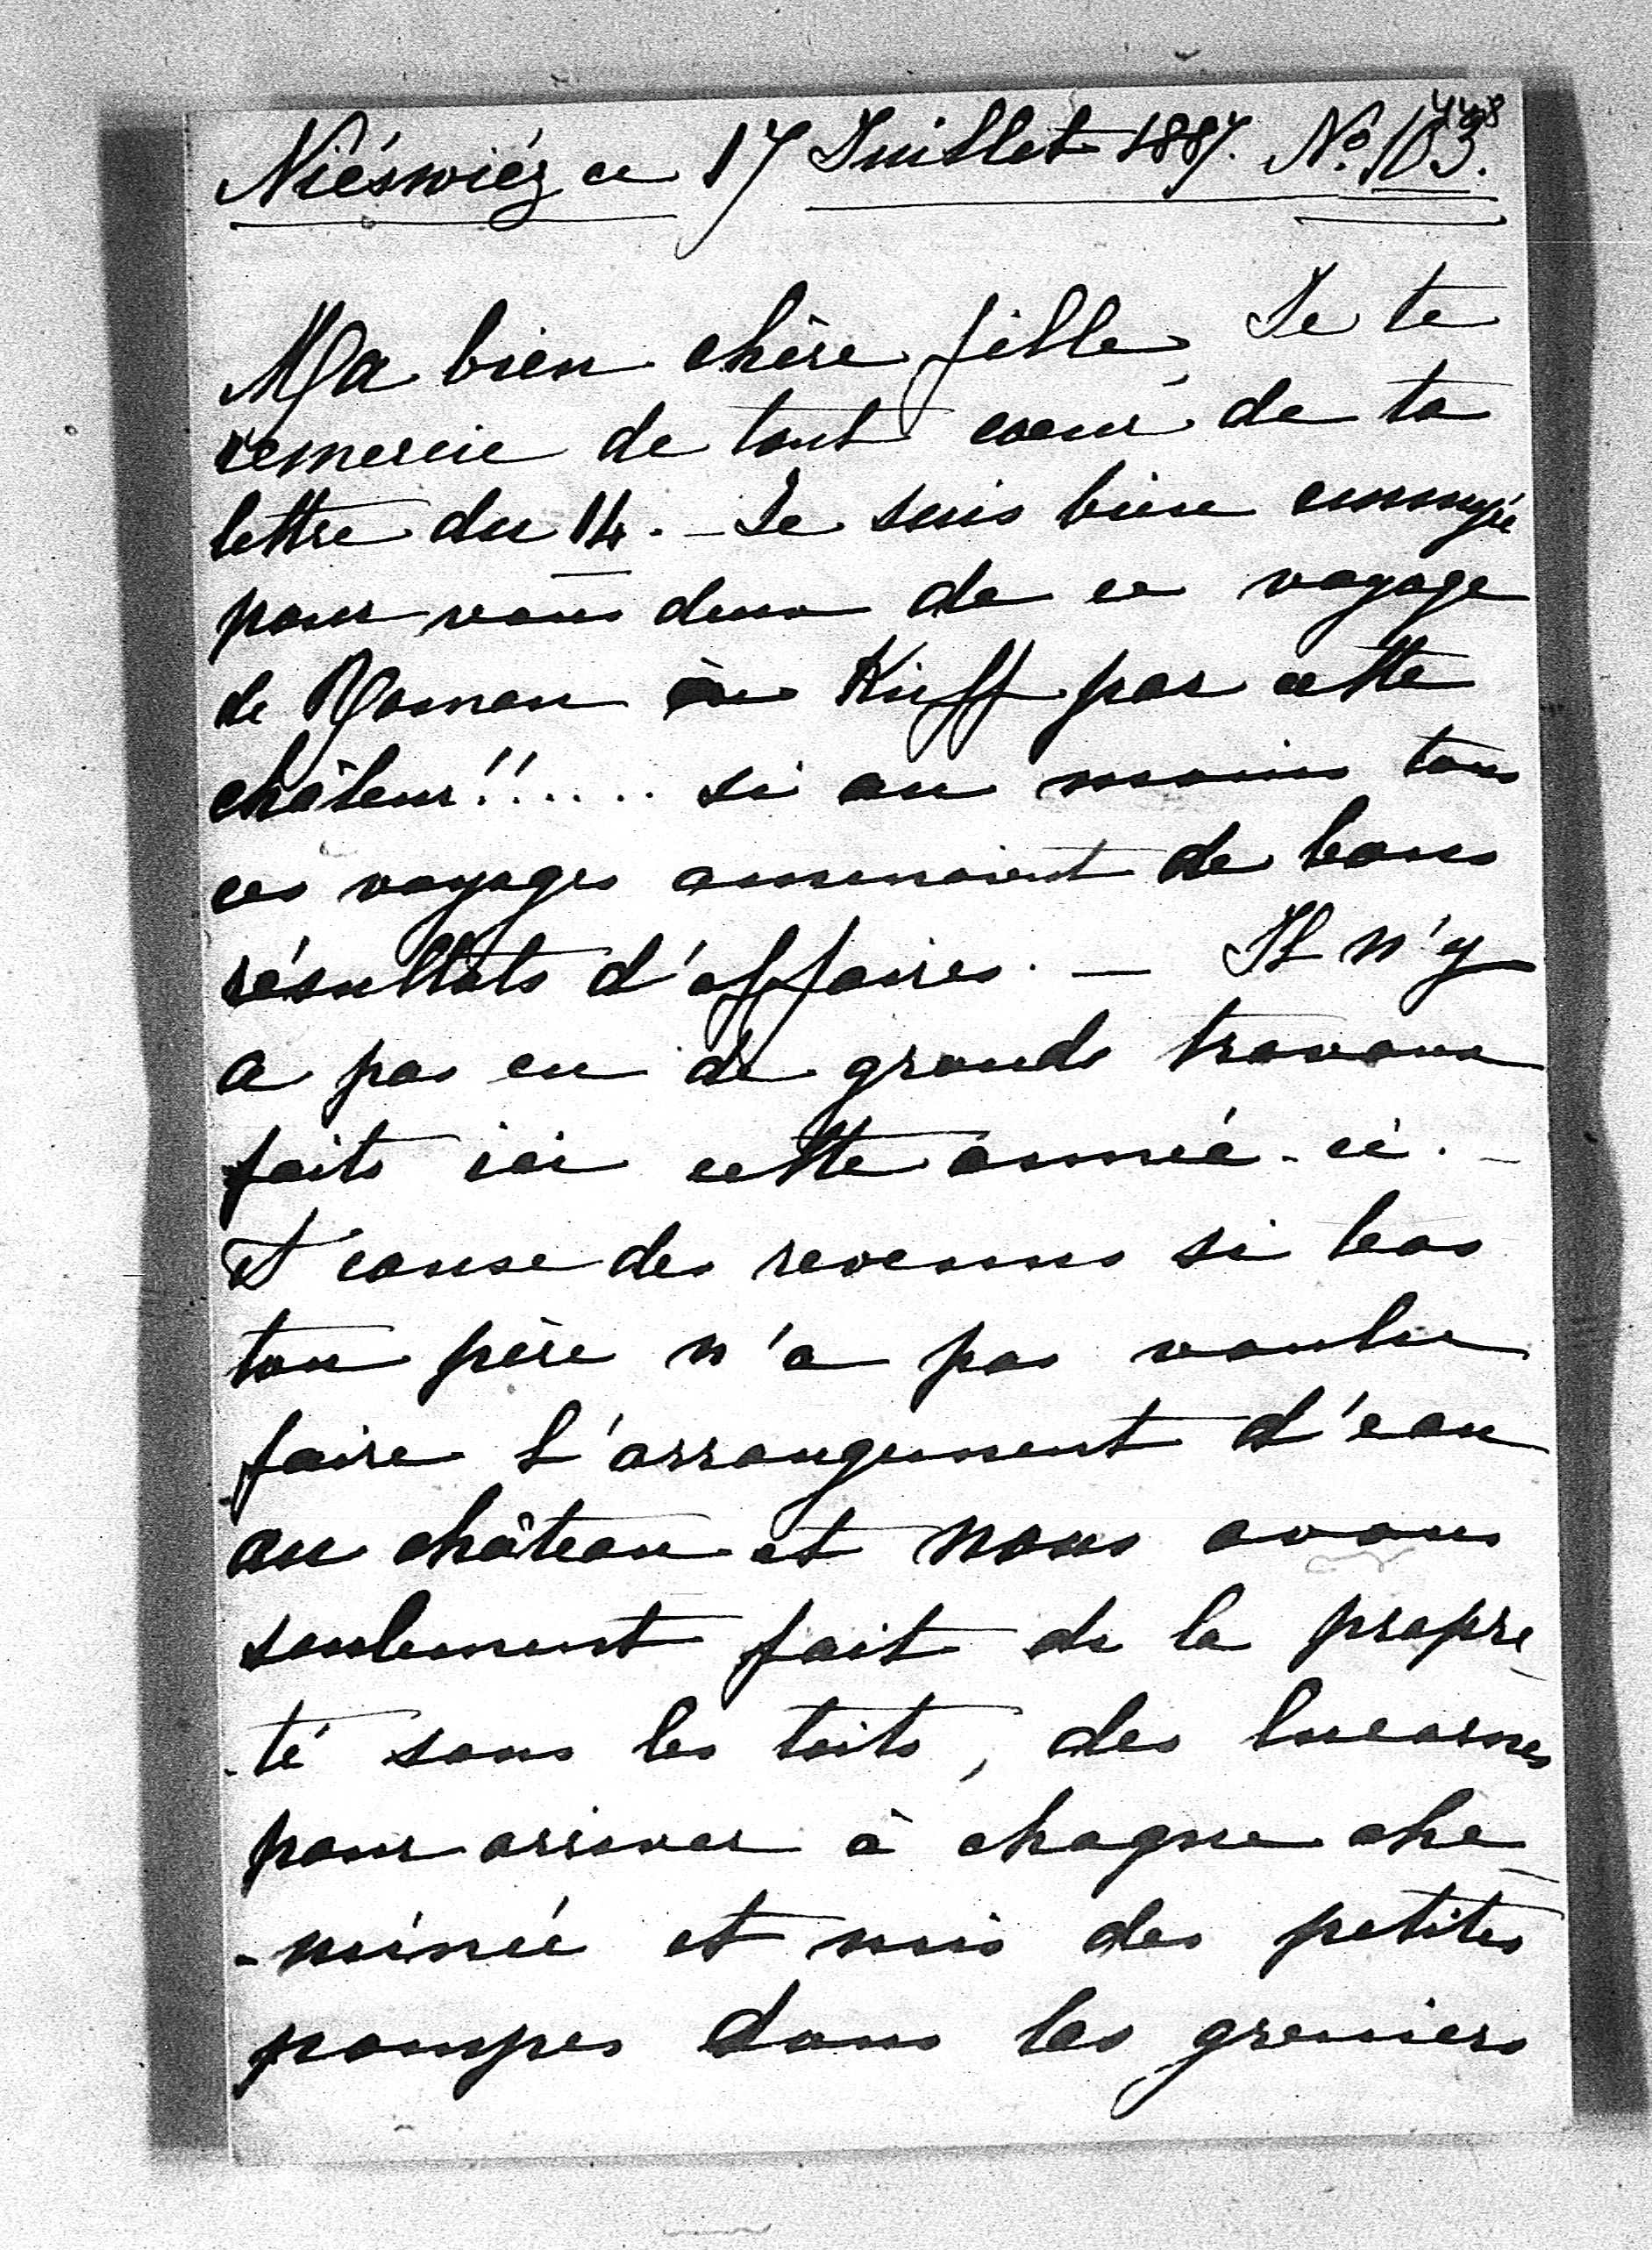 Niéswiéz ce 17 Juillet 1887. No. 103.
Ma bien chère fille, Je te
remercie de tout coeur de ta
lettre du 14. - Je suis bien ennuyée
pour vous deux de ce voyage
de Roman à Kieff par cette
châleur!!..... si au moins tous
ces voyages amenaient de bons
résultats d'affaires. — Il n'y
a pas eu de grands travaux
faits ici cette année-ci. -
A cause des revenus si bas
ton père n'a pas voulu
faire l'arrangement d'eau
au château et nous avons
seulement fait de la propre
-té sous les toits, des lucarnes
pour arriver à chaque che
-minée et mis des petites
pompes dans les greniers